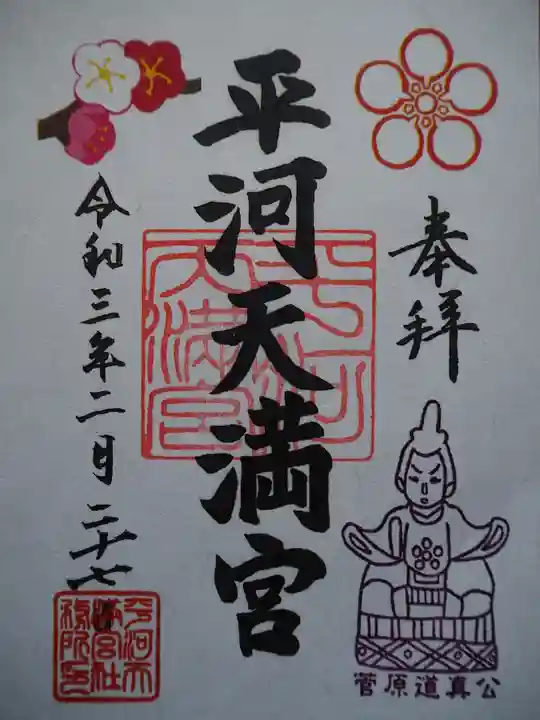 奉拝
菅原道真公
平河天満宮
平河天満宮
令和三年二月二十七
平河天
満宮社
務所印